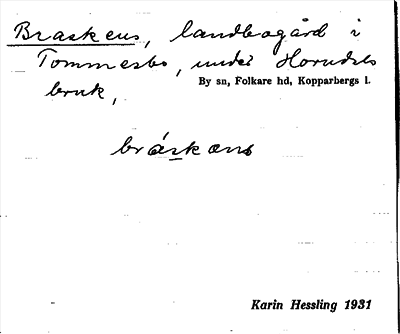 Braskens, landbogård i
Tommesbo, under Horndals
By sn, Folkare hd, Kopparbergs l.
bruk,
bráskæns
Karin Hessling 1931